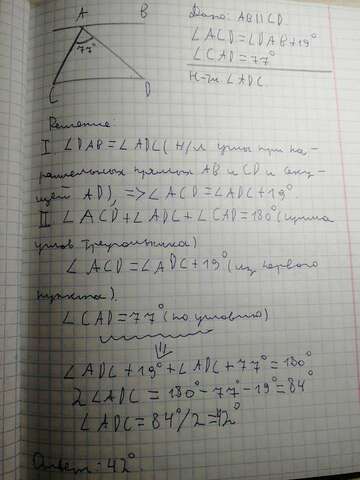 A B
77°
C D
Дано: AB||CD
∠ACD=∠DAB+19°
∠CAD=77°
Н-ти: ∠ADC.
Решение:
I ∠DAB=∠ADC (Н/л углы при па-
раллельных прямых AB и CD и секу-
щей AD), => ∠ACD=∠ADC+19°.
II ∠ACD+∠ADC+∠CAD=180° (сумма
углов треугольника)
∠ACD=∠ADC+19° (из первого
пункта).
∠CAD=77° (по условию)
∠ADC+19°+∠ADC+77°=180°
2∠ADC=180°-77°-19°=84°
∠ADC=84°/2=42°
Ответ: 42°.